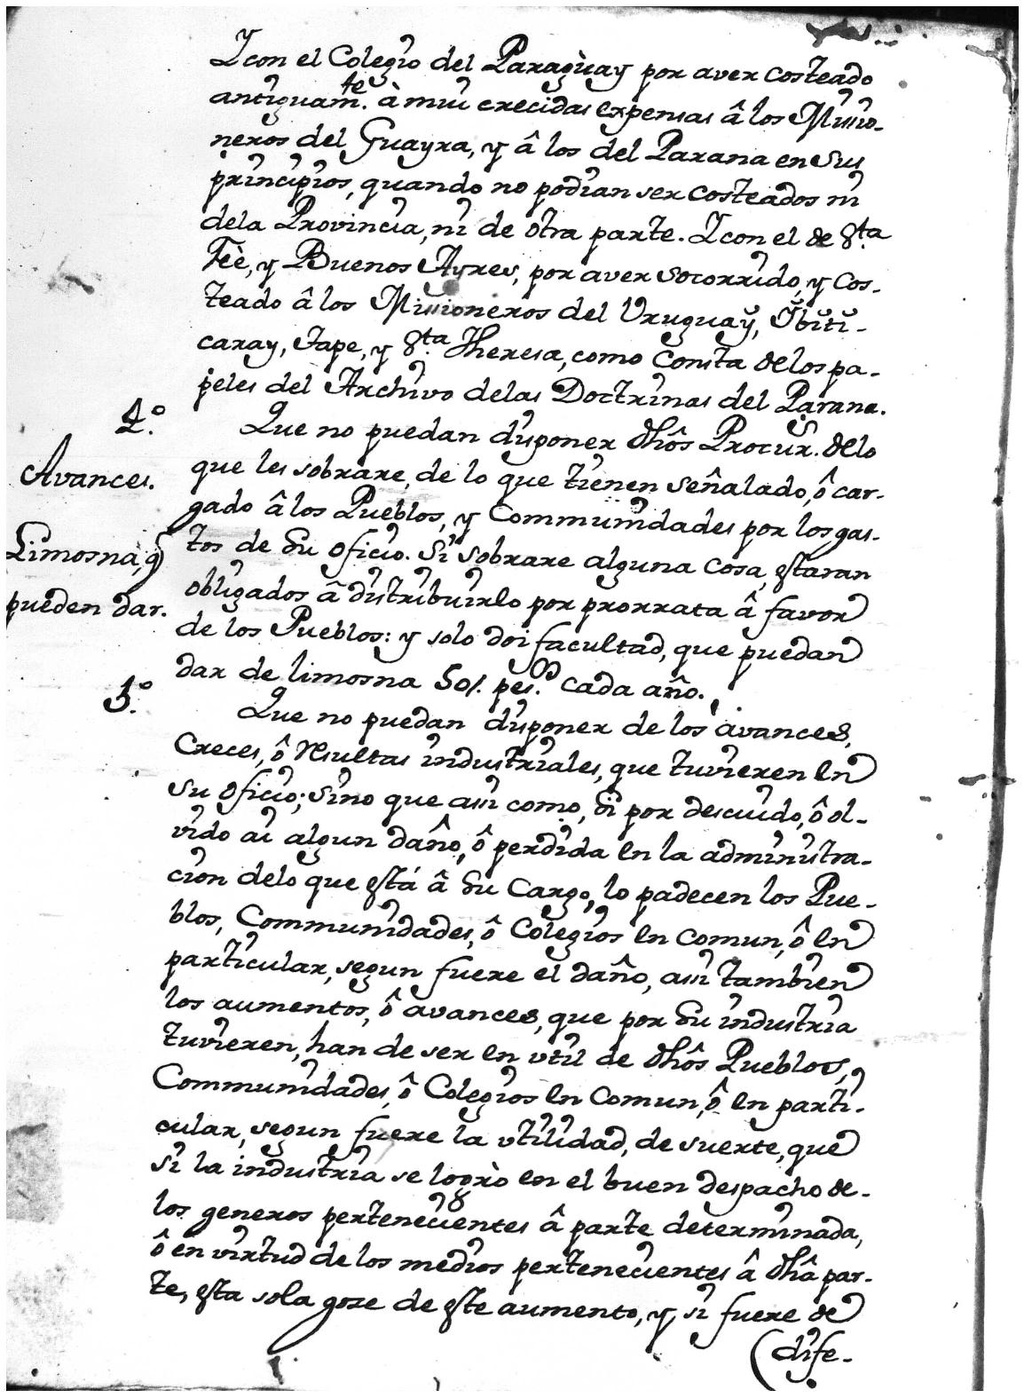 Y con el Colegio del Paraguay por aver costeado
antiguam.te à mui crecidas expensas â los Missio-
neros del Guayra, y â los del Parana en sus
principios, quando no podian ser costeados ni
dela Provincia, ni de otra parte. Y con el de Sta.
Feè, y Buenos Ayres, por aver socorrido, y cos-
teado â los Missioneros del Uruguaÿ, Ŏbiti-
caray, Tape, y Sta. Theresa, como consta delos pa-
peles del Archivo delas Doctrinas del Parana.
4.º Que no puedan disponer dhôs Procur. delo
Avances.
que les sobrare, de lo que tienen señalado, ô car-
gado â los Pueblos, y Communidades por los gas-
Limosna, q
tos de su oficio. Si sobrare alguna cosa, estaran
pueden dar.
obligados â distribuirlo por prorrata â favor
de los Pueblos: y solo doi facultad, que puedan
dar de limosna 50/. pes.os cada año.
5.º Que no puedan disponer de los avances,
creces, ô resultas industriales, que tuvieren en
su oficio; sino que assi como, si por descuido, ô ol-
vido ai algun daño, ô perdida en la administra-
cion delo que está â su cargo, lo padecen los Pue-
blos, Communidades, ô Colegios en comun, ô en
particular, segun fuere el daño, assi tambien
los aumentos, ô avances, que por su industria
tuvieren, han de ser en util de dhôs Pueblos,
Communidades, ô Colegios en comun, ô en parti-
cular, segun fuere la utilidad, de suerte, que
si la industria se logrò en el buen despacho de-
los generos pertenecientes â parte determinada,
ô en virtud de los medios pertenecientes â dhâ par-
te, esta sola goze de este aumento, y si fuere de
(dife-